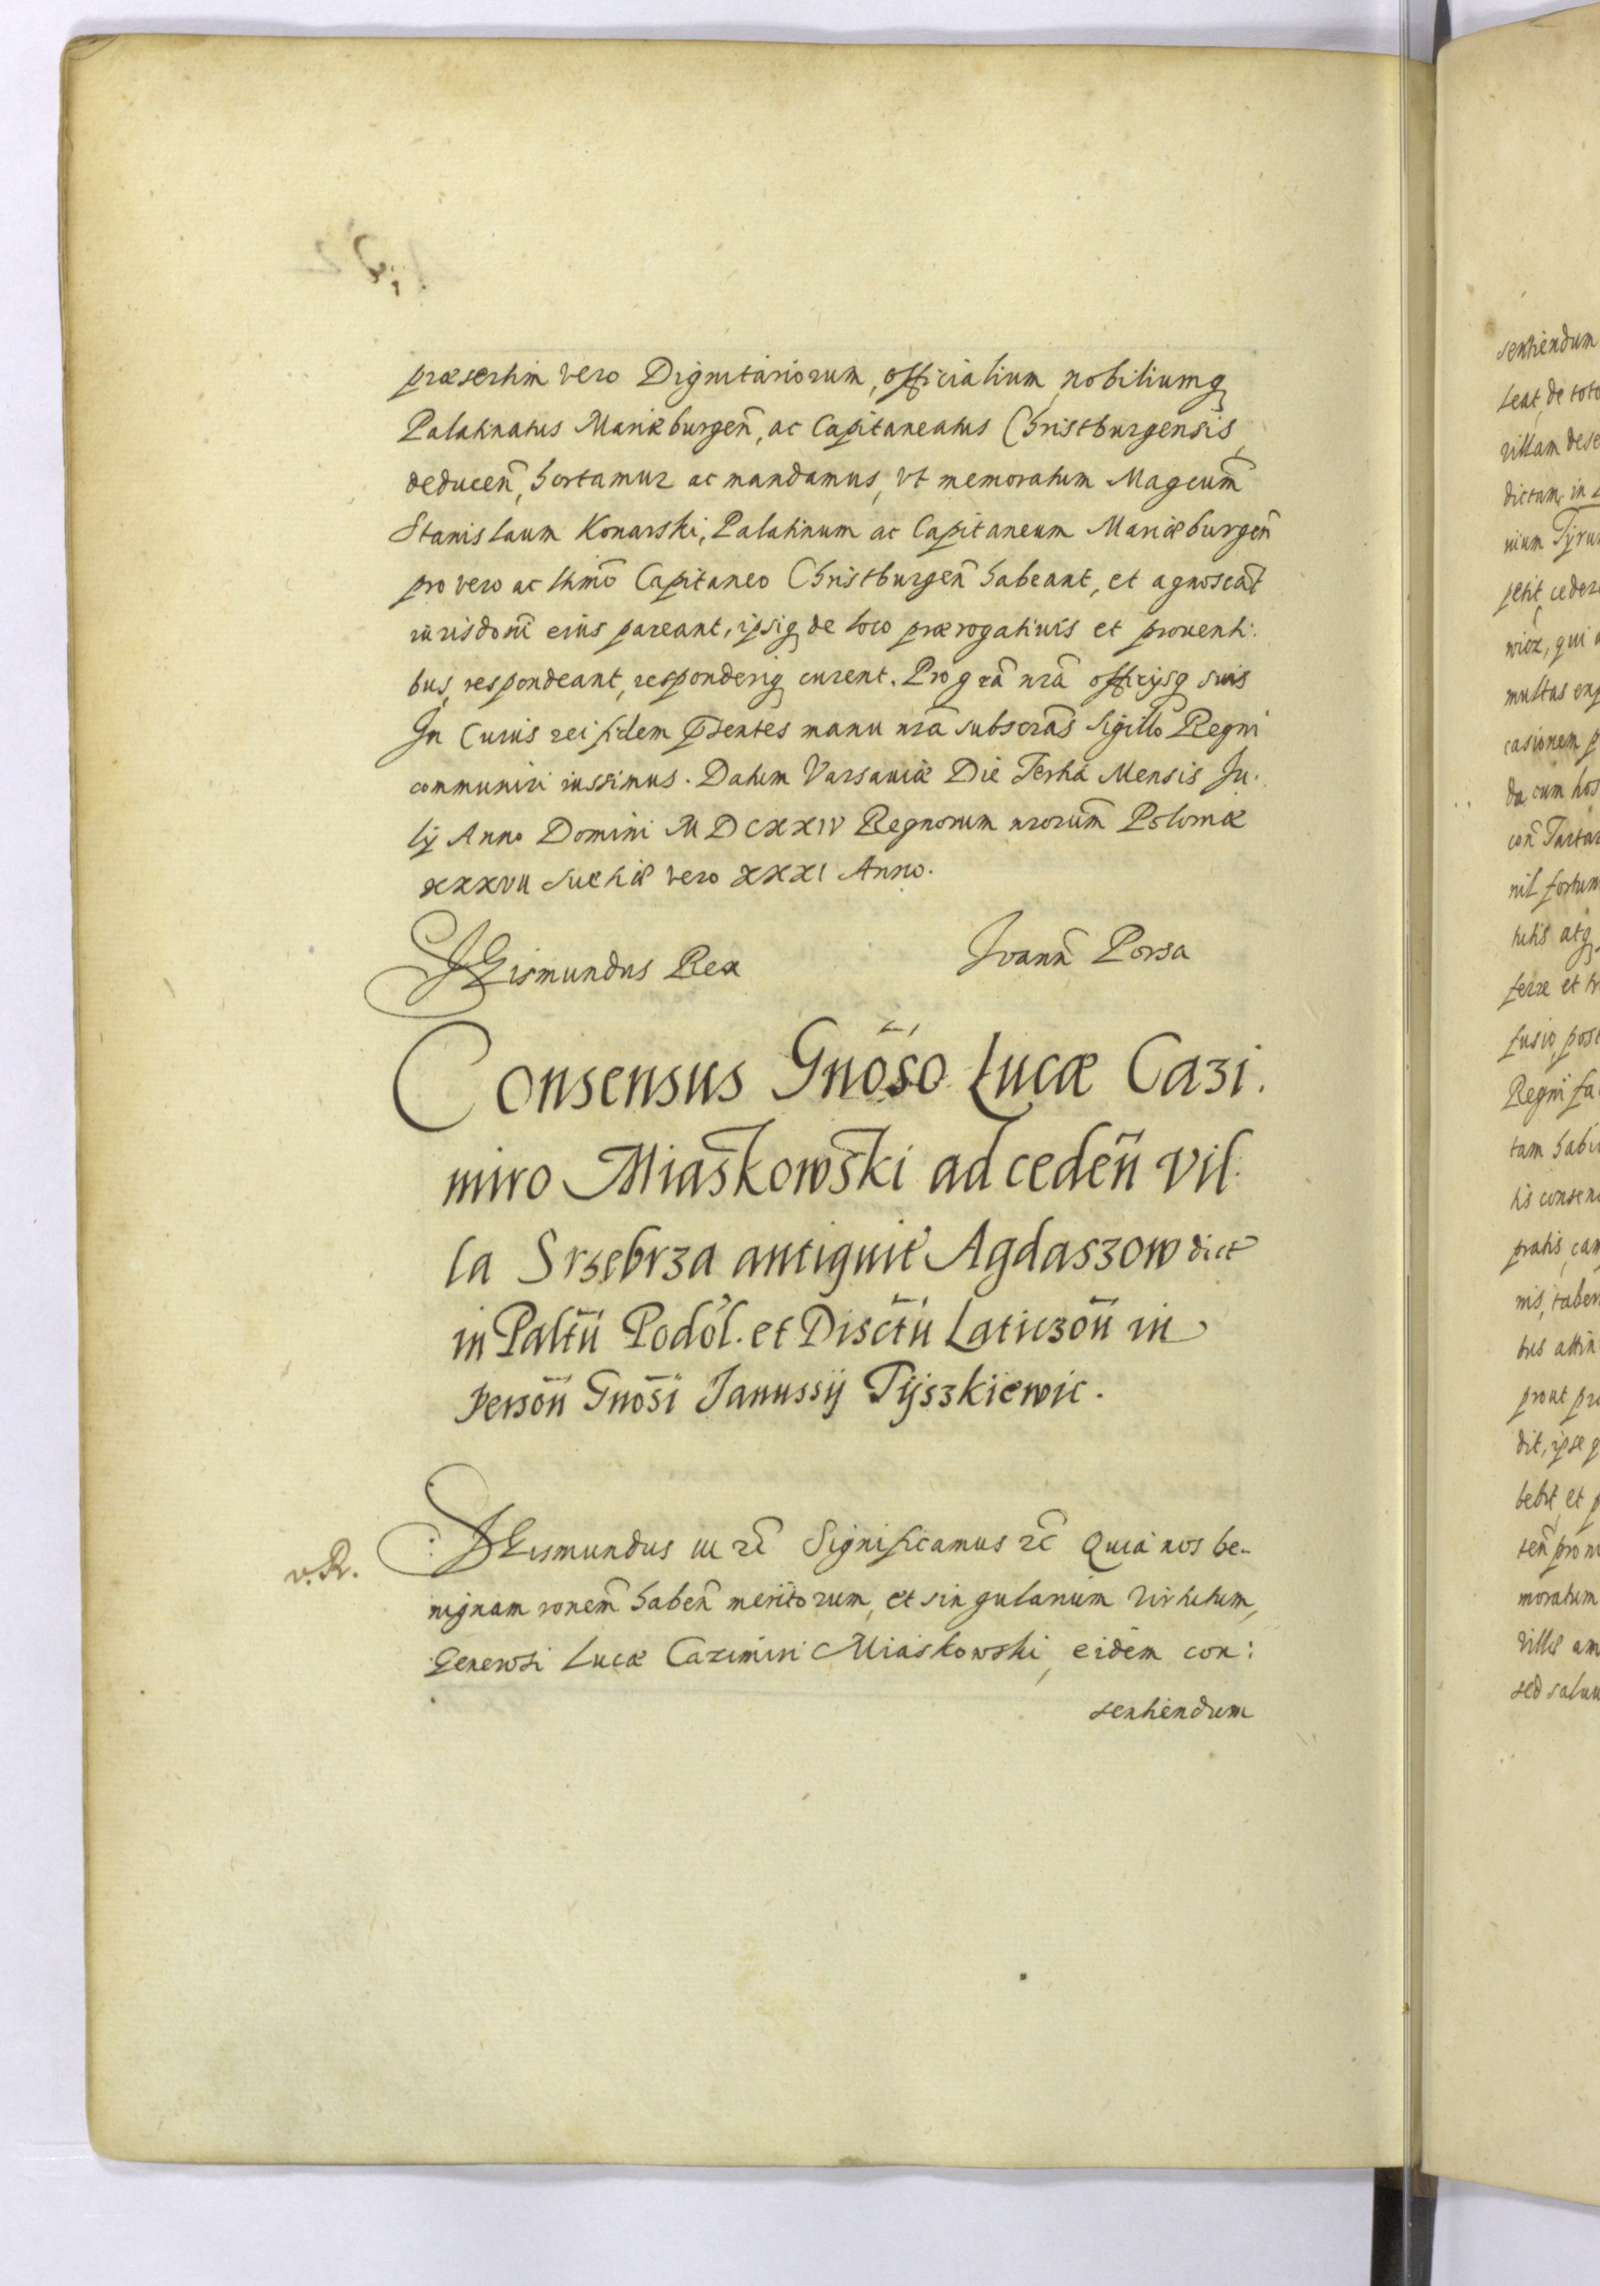 præsertim vero Dignitariorum, officialium, nobiliumq
Palatinatus Mariæburgen̄, ac Capitaneatus Christburgensis,
deducen̄, hortamur ac mandamus, vt memoratum Magcum̄
Stanislaum Konarski, Palatinum ac Capitaneum Mariæburgen̄
pro vero ac ltimō Capitaneo Christburgen̄ habeant, et agnoscāt
iurisdoni eius pareant, ipsiq de loco prærogatiuis et prouenti:
bus, respondeant, responderiq curent. Pro grā nrā officijsq suis
In Cuius rei fidem pn̄tes manu nrā subscrās Sigillō Regni
communiri iussimus. Datum Varsauiæ Die Tertia Mensis Ju.
lij Anno Domini MDCXXIV Regnorum nrorum̄ Poloniæ
XXXVII Suetiæ vero XXXI Anno.
Sigismundus Rex
Ioann̄ Porsa
Consensus Gnōso Lucæ Cazi.
miro Miaskowski ad ceden̄ Vil.
la Srzebrza antiquit Agdaszow dict
in Paltū Podol. et Disctū Laticzoū in
person̄ Gnōsi Janussij Tijszkiewic.
v. R.
Sigismundus III rc̄ Significamus rc̄ Quia nos be-
nignam ronem̄ haben̄ meritorum, et singularium virtutum,
Generosi Lucæ Cazimiri Miaskowski, eidem con:
sentiendum
sentiendum
leat, de toto
villam dese
dictam in
nium Tyru
petit ceder
wicz, qui
multas exp
casionem p
da cum hos
con̄ Tartar
nil fortun
tutis atq
ferre et tr
fusio, post
Regni fa
tam habi
tis consen
pratis, cam
nis, taber
bus attin
prout pr
dit, ipse q
bebit, et p
ten̄ pro n
moratum
villæ am
sed saluu